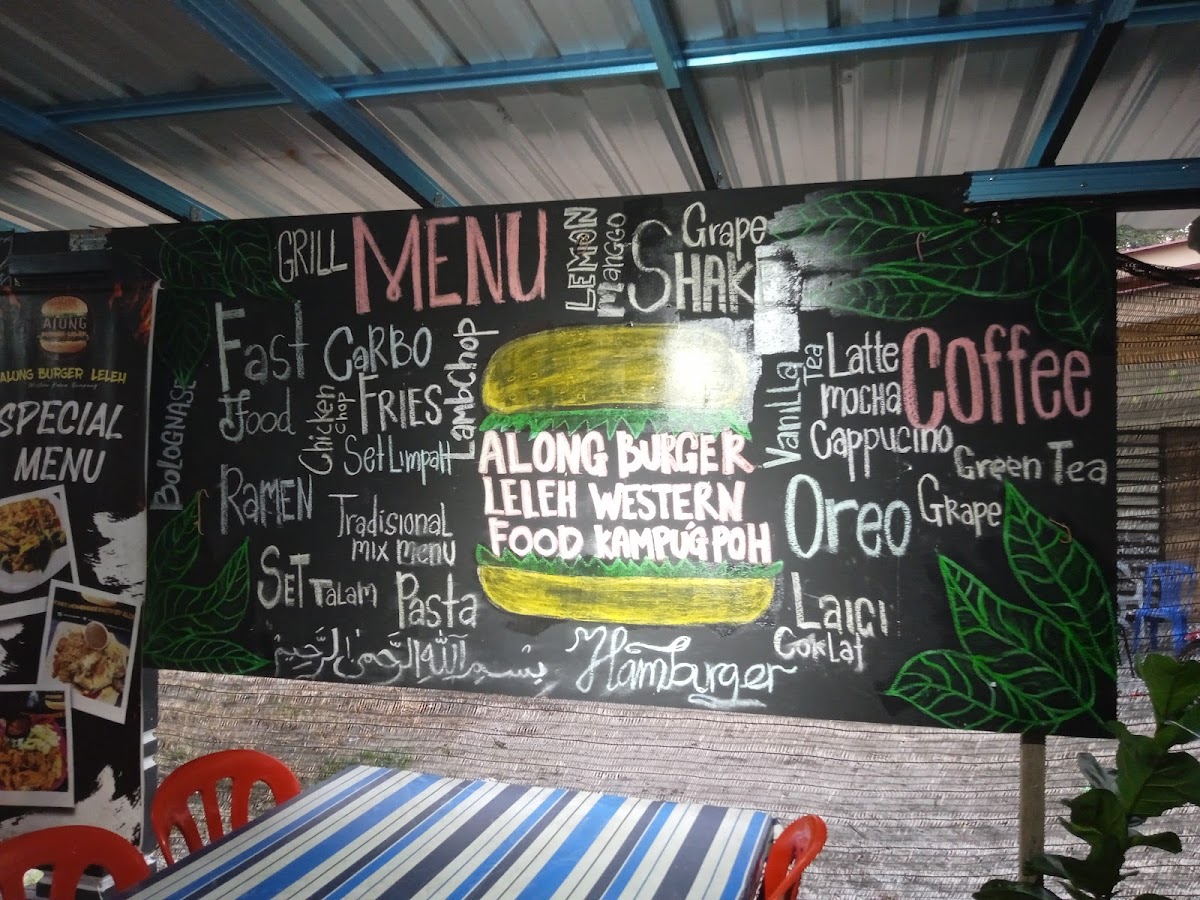 ALONG
ALONG BURGER LELEH
SPECIAL
MENU
GRILL
MENU
LEMON
Manggo
Grape
SHAKE
Fast
Food
Carbo
FRIES
LambChop
Chicken
chop
Set Limpah
BOLOGNASE
RAMEN
Tradisional
mix menu
SET TALAM
Pasta
بسم الله الرحمن الرحيم
ALONG BURGER
LELEH WESTERN
FOOD KAMPUNG POH
Hamburger
Vanilla
Tea
Latte
mocha
Coffee
Cappucino
Green Tea
Oreo
Grape
LAICI
Coklat